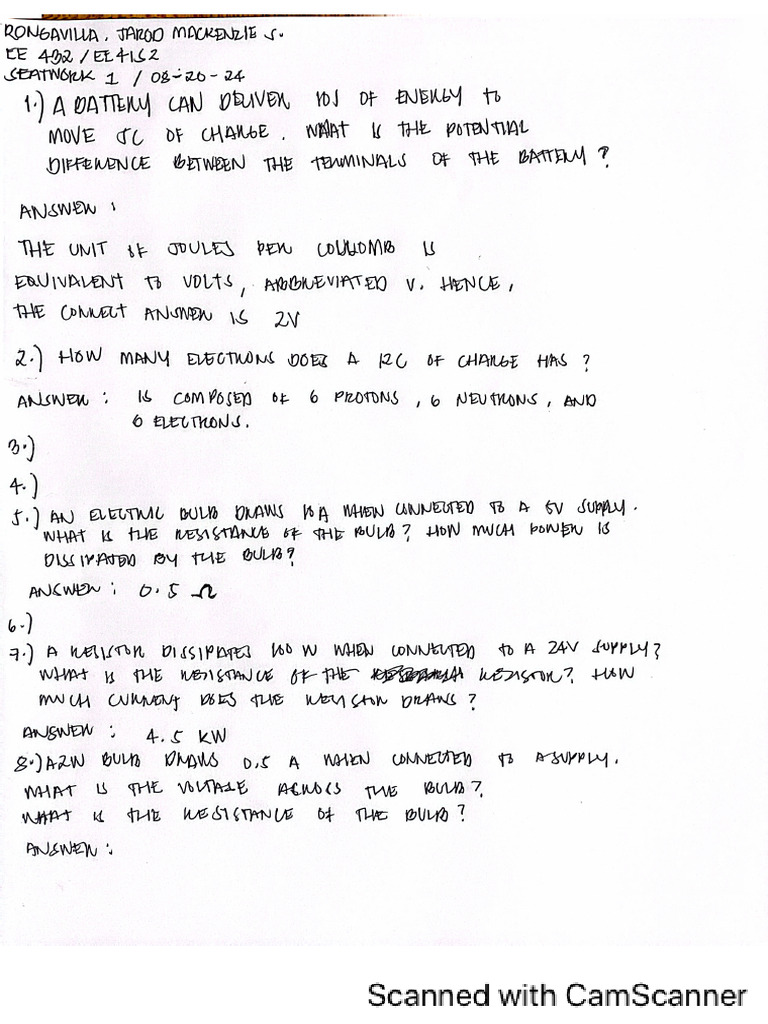 RONGAVILLA, JAROD MACKENZIE S.
EE 432 / EE4152
SEATWORK 1 / 08-20-24
1.) A BATTERY CAN DELIVER 10J OF ENERGY TO
MOVE 5C OF CHARGE. WHAT IS THE POTENTIAL
DIFFERENCE BETWEEN THE TERMINALS OF THE BATTERY?
ANSWER:
THE UNIT OF JOULES PER COULOMB IS
EQUIVALENT TO VOLTS, ABBREVIATED V. HENCE,
THE CORRECT ANSWER IS 2V
2.) HOW MANY ELECTRONS DOES A 12C OF CHARGE HAS?
ANSWER: IS COMPOSED OF 6 PROTONS, 6 NEUTRONS, AND
6 ELECTRONS.
3.)
4.)
5.) AN ELECTRIC BULB DRAWS 10A WHEN CONNECTED TO A 5V SUPPLY.
WHAT IS THE RESISTANCE OF THE BULB? HOW MUCH POWER IS
DISSIPATED BY THE BULB?
ANSWER: 0.5 Ω
6.)
7.) A RESISTOR DISSIPATES 100 W WHEN CONNECTED TO A 24V SUPPLY?
WHAT IS THE RESISTANCE OF THE RESISTOR? HOW
MUCH CURRENT DOES THE RESISTOR DRAWS?
ANSWER: 4.5 KW
8.) A 2W BULB DRAWS 0.5 A WHEN CONNECTED TO A SUPPLY.
WHAT IS THE VOLTAGE ACROSS THE BULB?
WHAT IS THE RESISTANCE OF THE BULB?
ANSWER:
Scanned with CamScanner